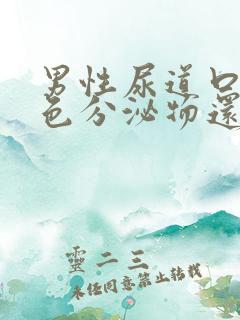 男性尿道口
色分泌物還
靈二三
未經同意禁止轉載